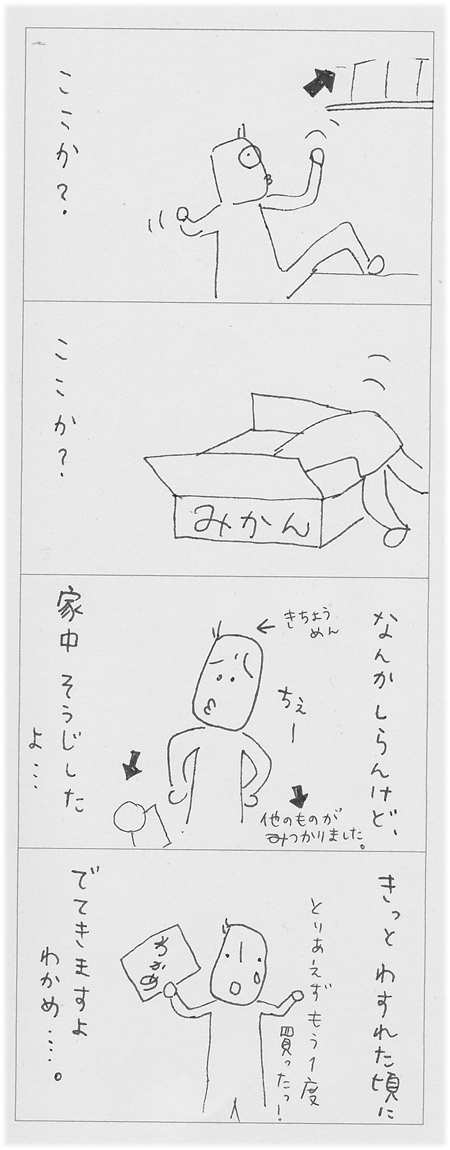 ここか?
ここか?
みかん
なんかしらんけど、
きちょう
めん
ちぇー
他のものが
みつかりました。
家中そうじした
よ…
きっとわすれた頃に
とりあえずもう1度
買ったっ!
わかめ
でてきますよ
わかめ…。